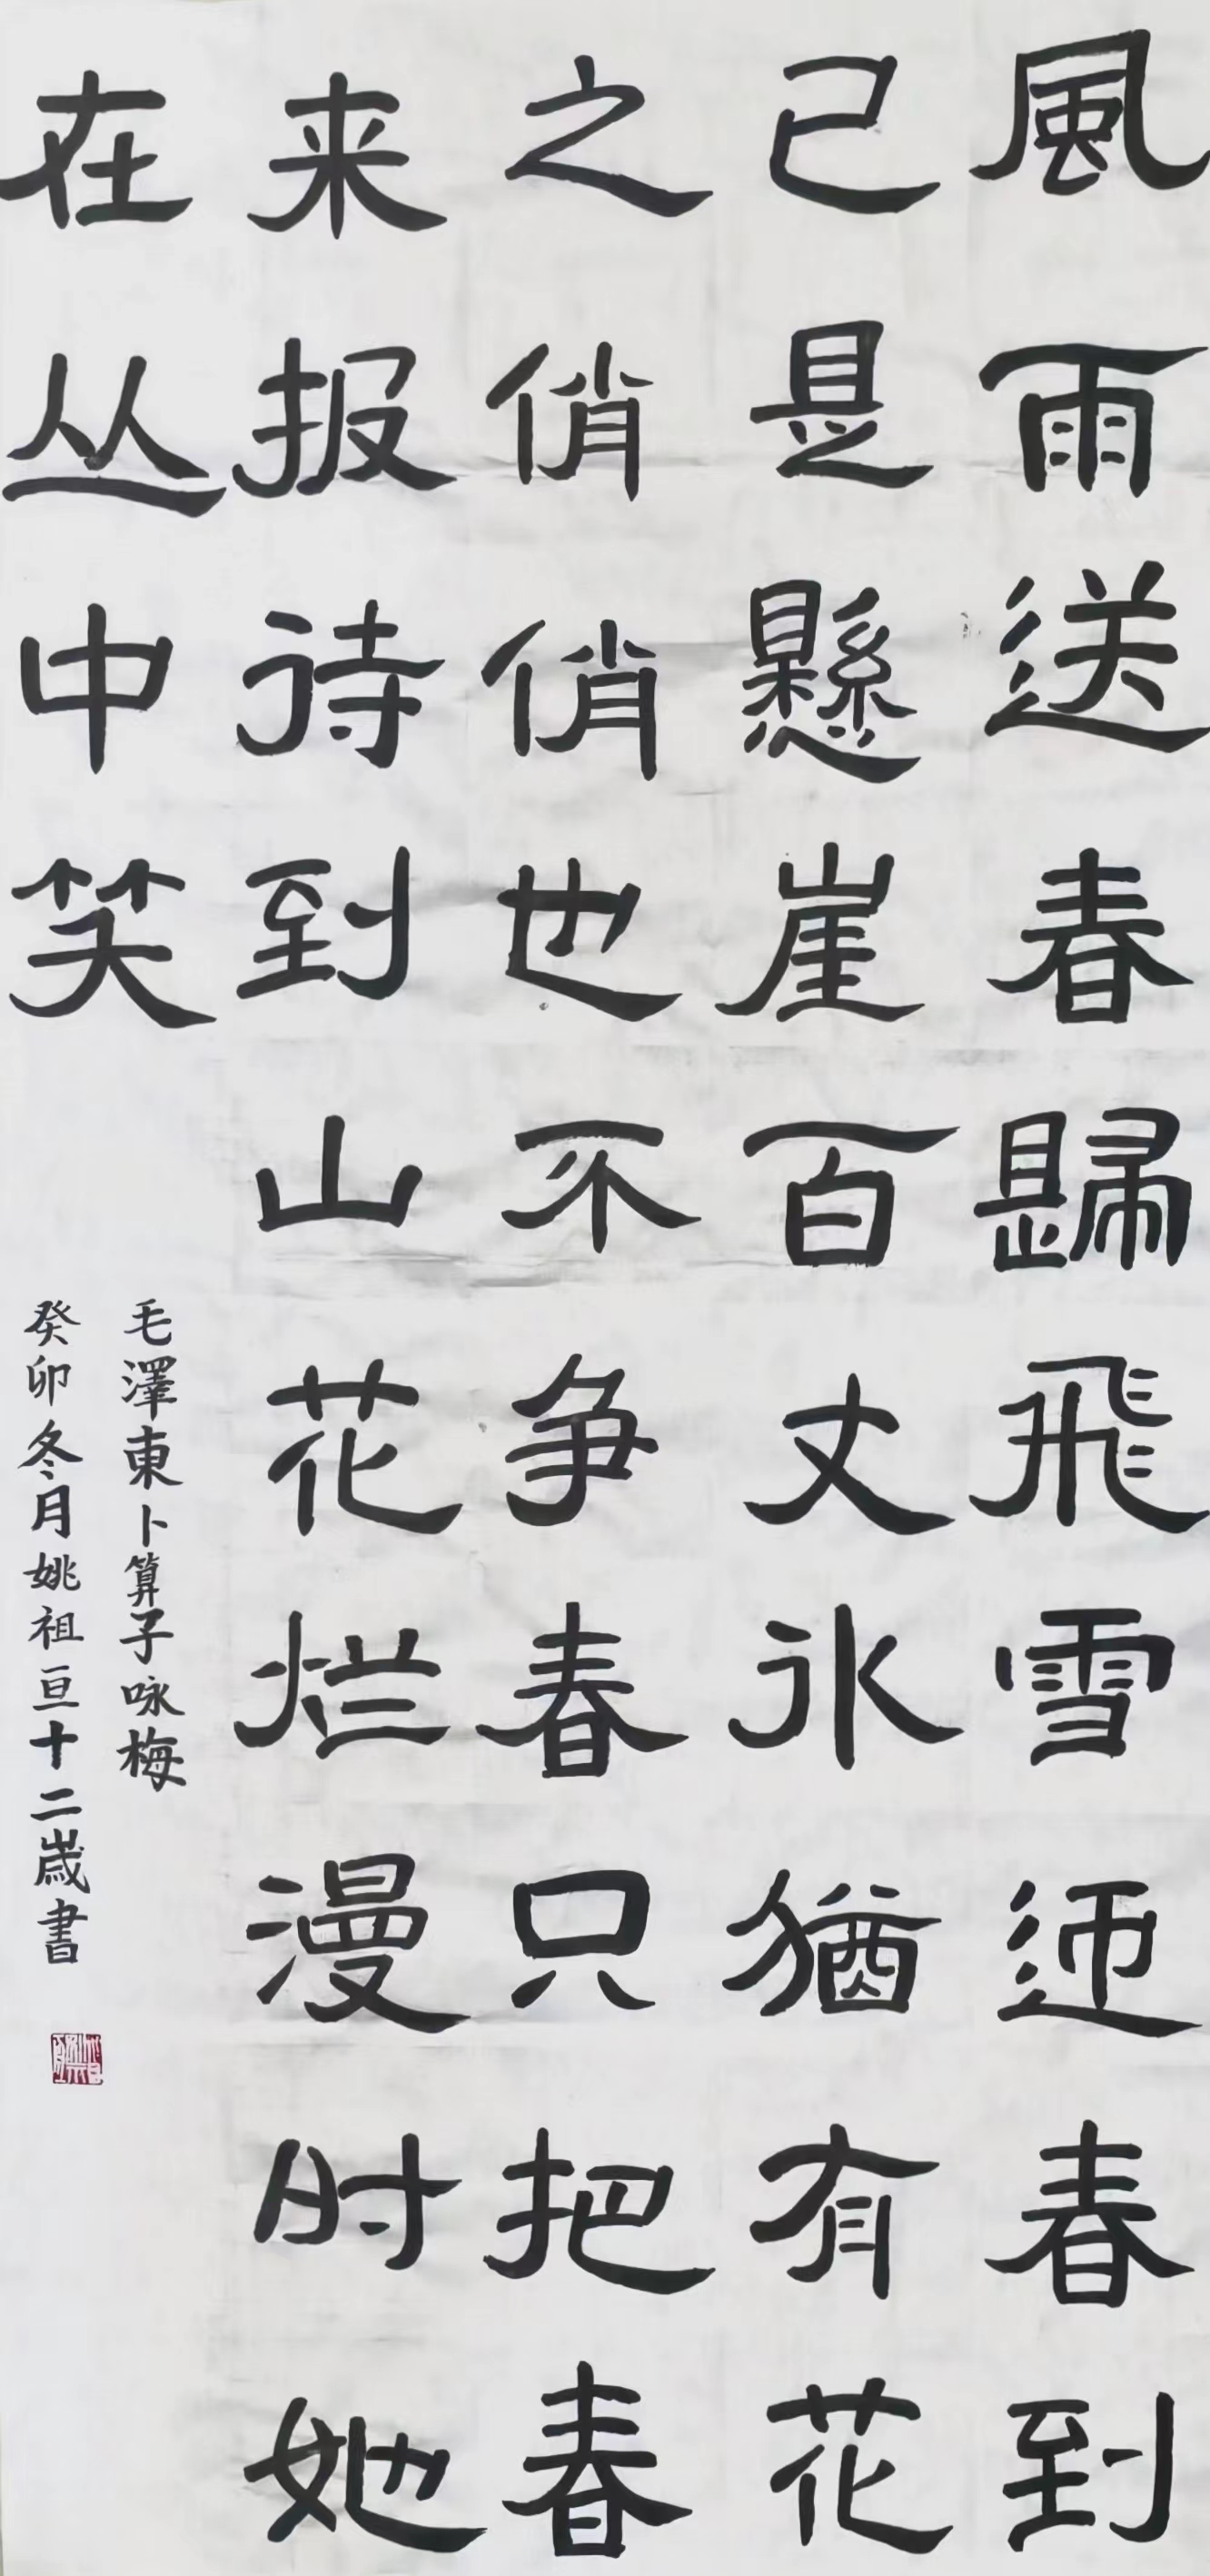 風雨送春歸飛雪迊春到
已是懸崖百丈氷猶有花
之俏俏也不争春只把春
来报待到山花烂漫时她
在丛中笑
毛澤東卜算子咏梅
癸卯冬月姚祖亘十二歲書